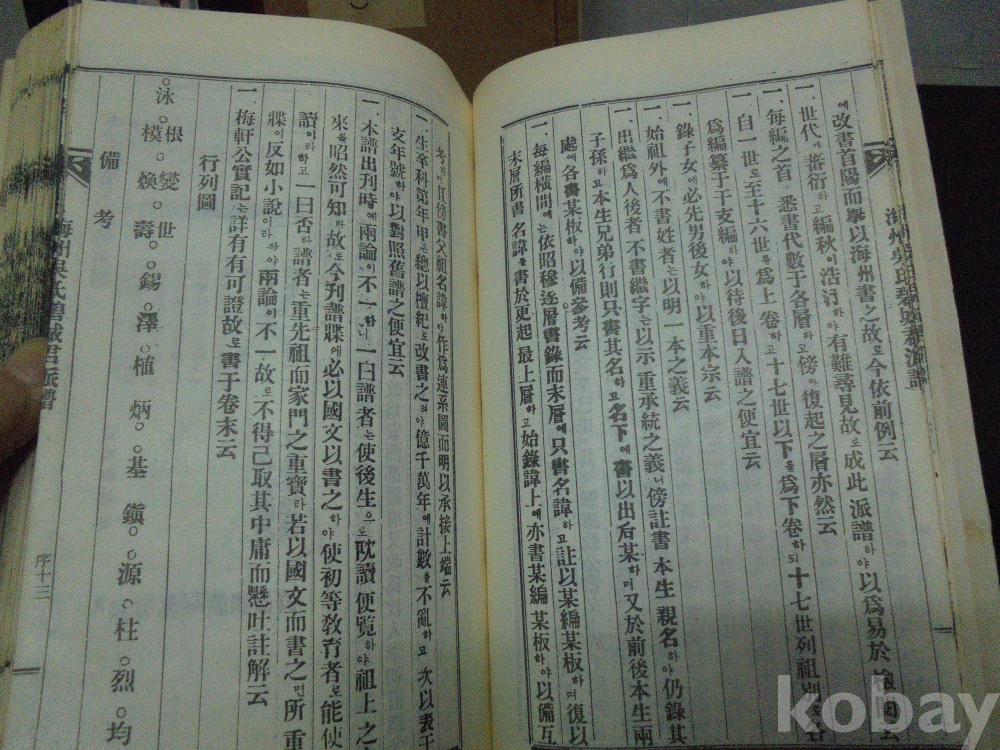 에改書首陽而擧以海州書之故로今依前例云
世代가蕃衍하고編秩이浩汗하야有難尋見故로成此派譜하야以爲易於
每編之首에悉書代數于各層하고傍에復起之層亦然云
自一世로至十六世를爲上卷하고十七世以下를爲下卷하되十七世列祖別
爲編纂于干支編하야以待後日入譜之便宜云
一、錄子女에必先男後女하야以重本宗云
一、始祖外에不書姓者는以明一本之義云
一、出繼爲人後者에不書繼字는以示重承統之義니傍註書本生親名하야仍錄其
子孫하고本生兄弟行則只書其名하고名下에書以出后某하며又於前後本生兩
處에各書某板하야以備參考云
一、每編橫間에는依昭穆逐層書錄而末層에只書名諱하고註以某編某板하며復以
末層所書名諱를書於更起最上層하고始錄諱上에亦書某編某板하야以備互
考하며且傍書父祖名諱하야作爲連系圖而明以承接上端云
一、生卒科第年甲은總以檀紀로改書之하야億千萬年에計數를不亂하고次以表干
支年號하야以對照舊譜之便宜云
一、本譜出刊時에兩論이不一한다一曰譜者는使後生으로耽讀便覽하야祖上之
來를昭然可知라故로今刊譜牒에必以國文以書之하야使初等敎育者로能使
讀이라하고一曰否라譜者는重先祖而家門之重寶라若以國文而書之면所重
牒이反如小說이라하야兩論이不一故로不得已取其中庸而懸吐註解云
一、梅軒公實記는詳有有可證故로書于卷末云
行列圖
泳 根 世
模 煥 燮 壽 錫 澤 植 炳 基 鎭 源 柱 烈 均
備考
海州吳氏
派譜
序十三
kobay